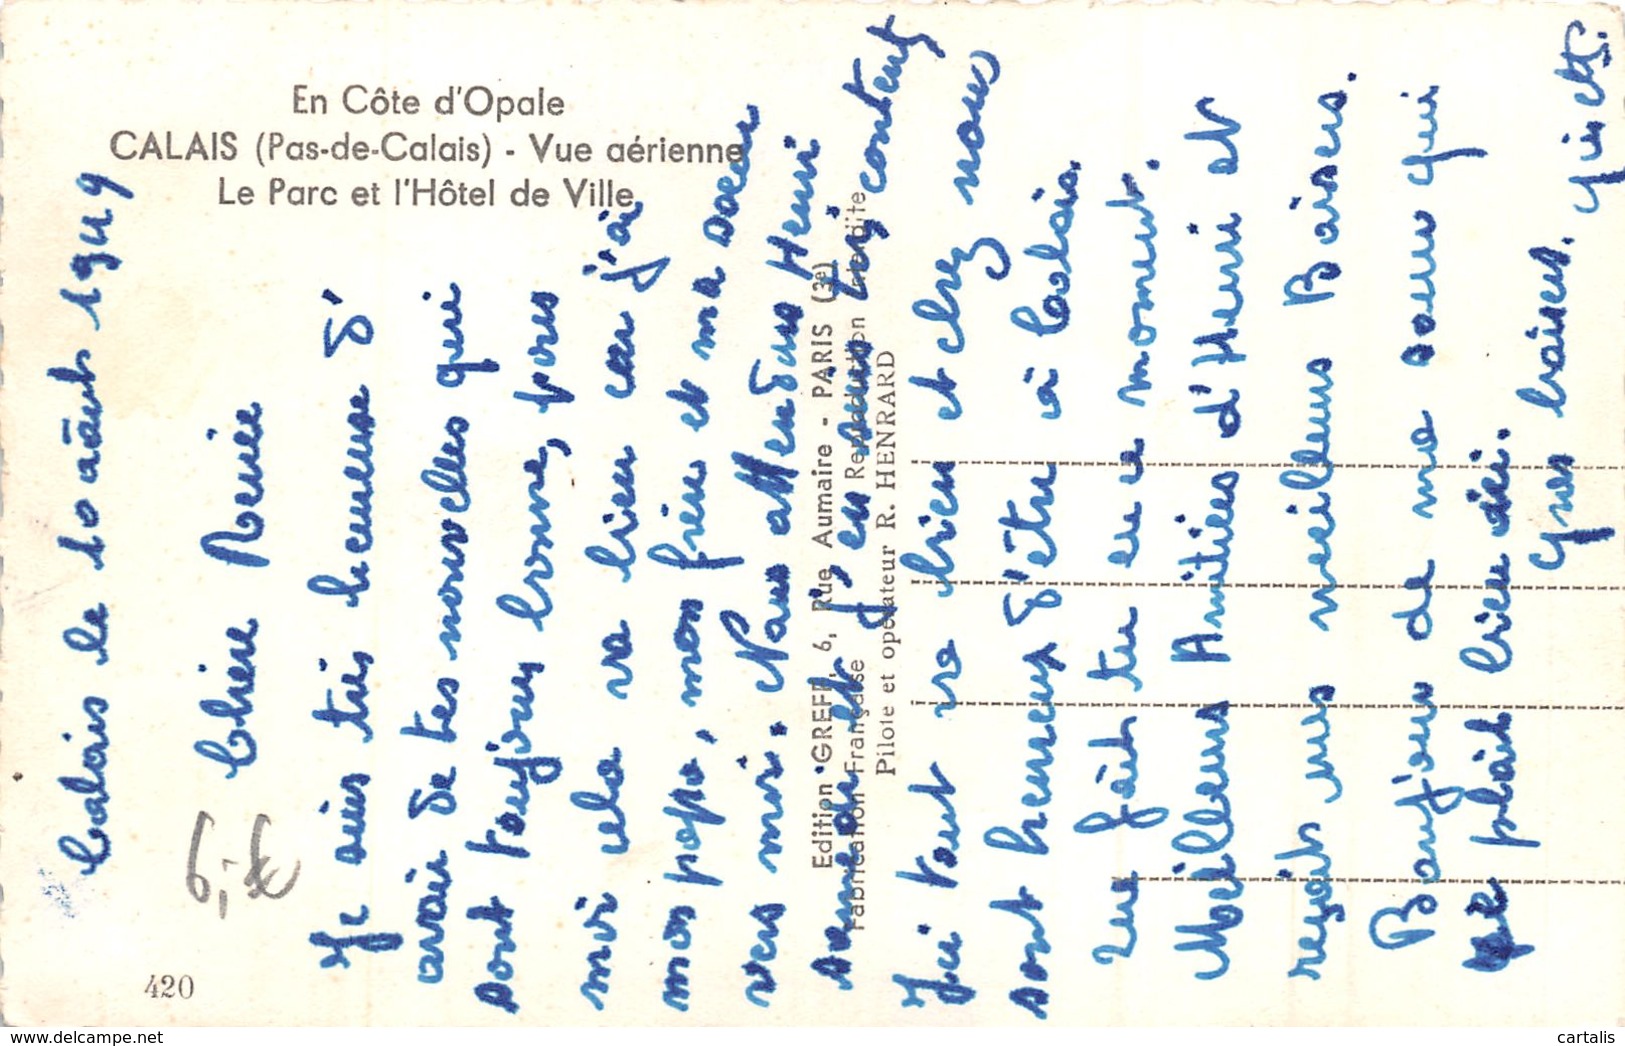 En Côte d'Opale
CALAIS (Pas-de-Calais) - Vue aérienne
Le Parc et l'Hôtel de Ville
Edition GREFF, 6, Rue Aumaire - PARIS (3e)
Fabrication Française Reproduction interdite
Pilote et opérateur R. HENRARD
420
6,-€
Calais le 10 août 1949
Chère Renée
Je suis très heureuse d'
avoir de tes nouvelles qui
sont toujours bonne, pour
moi cela va bien car j'ai
mon papa, mon frère et ma sœur
vers moi. Nous attendons Henri
samedi j'en suis contente
Ici tout va bien et chez nous
sont heureux d'être à Calais.
Que fait tu en ce moment.
Meilleurs Amitiés d'Henri et
reçoit mes meilleurs Baisers.
Bonjour de ma sœur qui
se plait bien ici.
Gros baisers. Ginette.
www.delcampe.net
cartalis